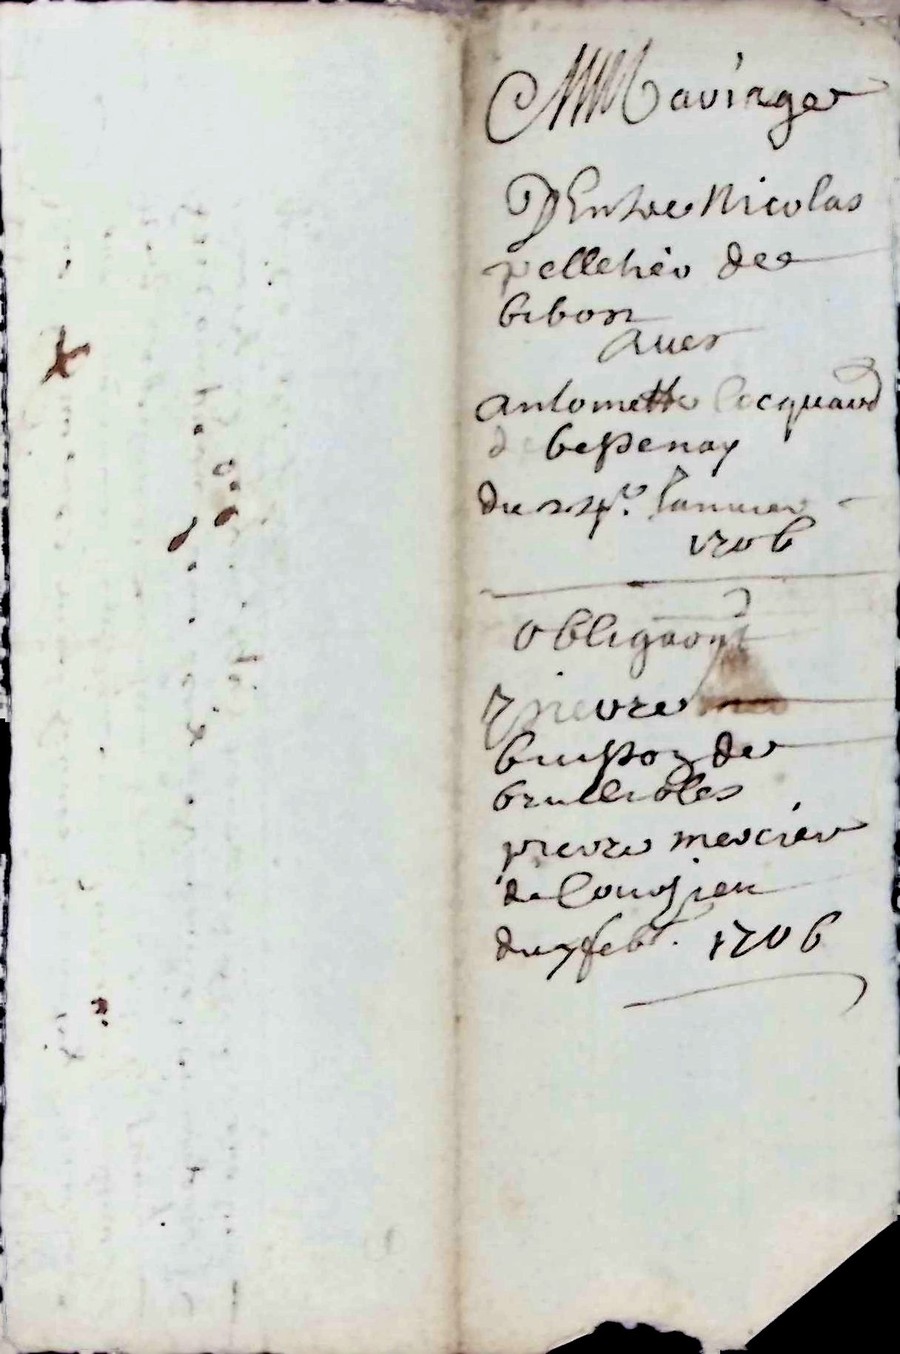 Mariage
D'Entre Nicolas
pelletier de
bibost
avec
antoinette Jacquard
de bessenay
du Janvier
1706
obligaõn
pierre
buisson de
brullioles
pierre mercier
de Courzieu
du 7 feb. 1706